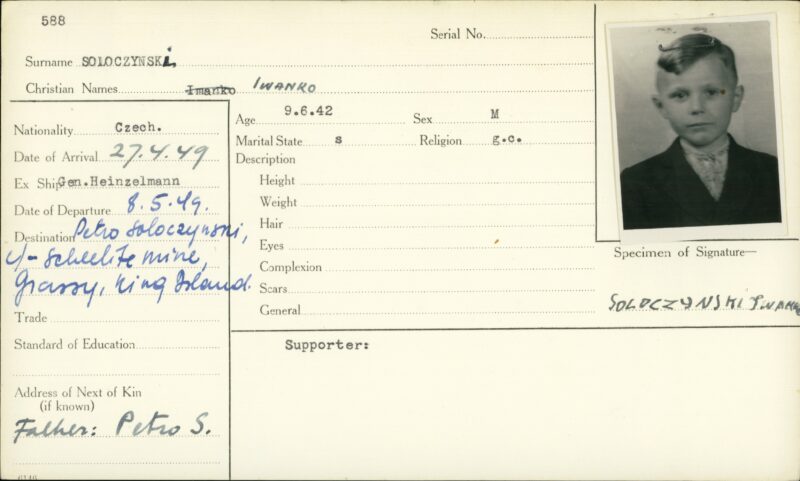 588
Serial No.
Surname SOLOCZYNSKi
Christian Names Imanko IWANKO
Nationality Czech.
Date of Arrival 27.4.49
Ex Ship Gen.Heinzelmann
Date of Departure 8.5.49.
Destination Petro Soloczynski,
c/- Scheelite mine,
Grassy, King Island.
Trade
Standard of Education
Address of Next of Kin
(if known)
Father: Petro S.
Age 9.6.42 Sex M
Marital State s Religion g.c.
Description
Height
Weight
Hair
Eyes
Complexion
Scars
General
Supporter:
Specimen of Signature—
SOLOCZYNSKI